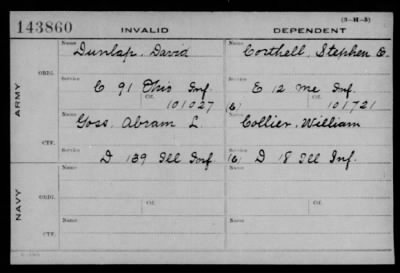 143860 INVALID DEPENDENT (3-H-3)
Name Dunlap, David Name Corthell, Stephen E.
ARMY
ORIG. Service C 91 Ohio Inf. Service E 12 Me Inf.
Ctf. 101027 (6) Ctf. 101721
Name Goss, Abram L. Name Collier, William
CTF. Service D 139 Ill Inf. Service (6) D 18 Ill Inf.
NAVY
Name Name
ORIG. Ctf. Ctf.
Name Name
CTF.